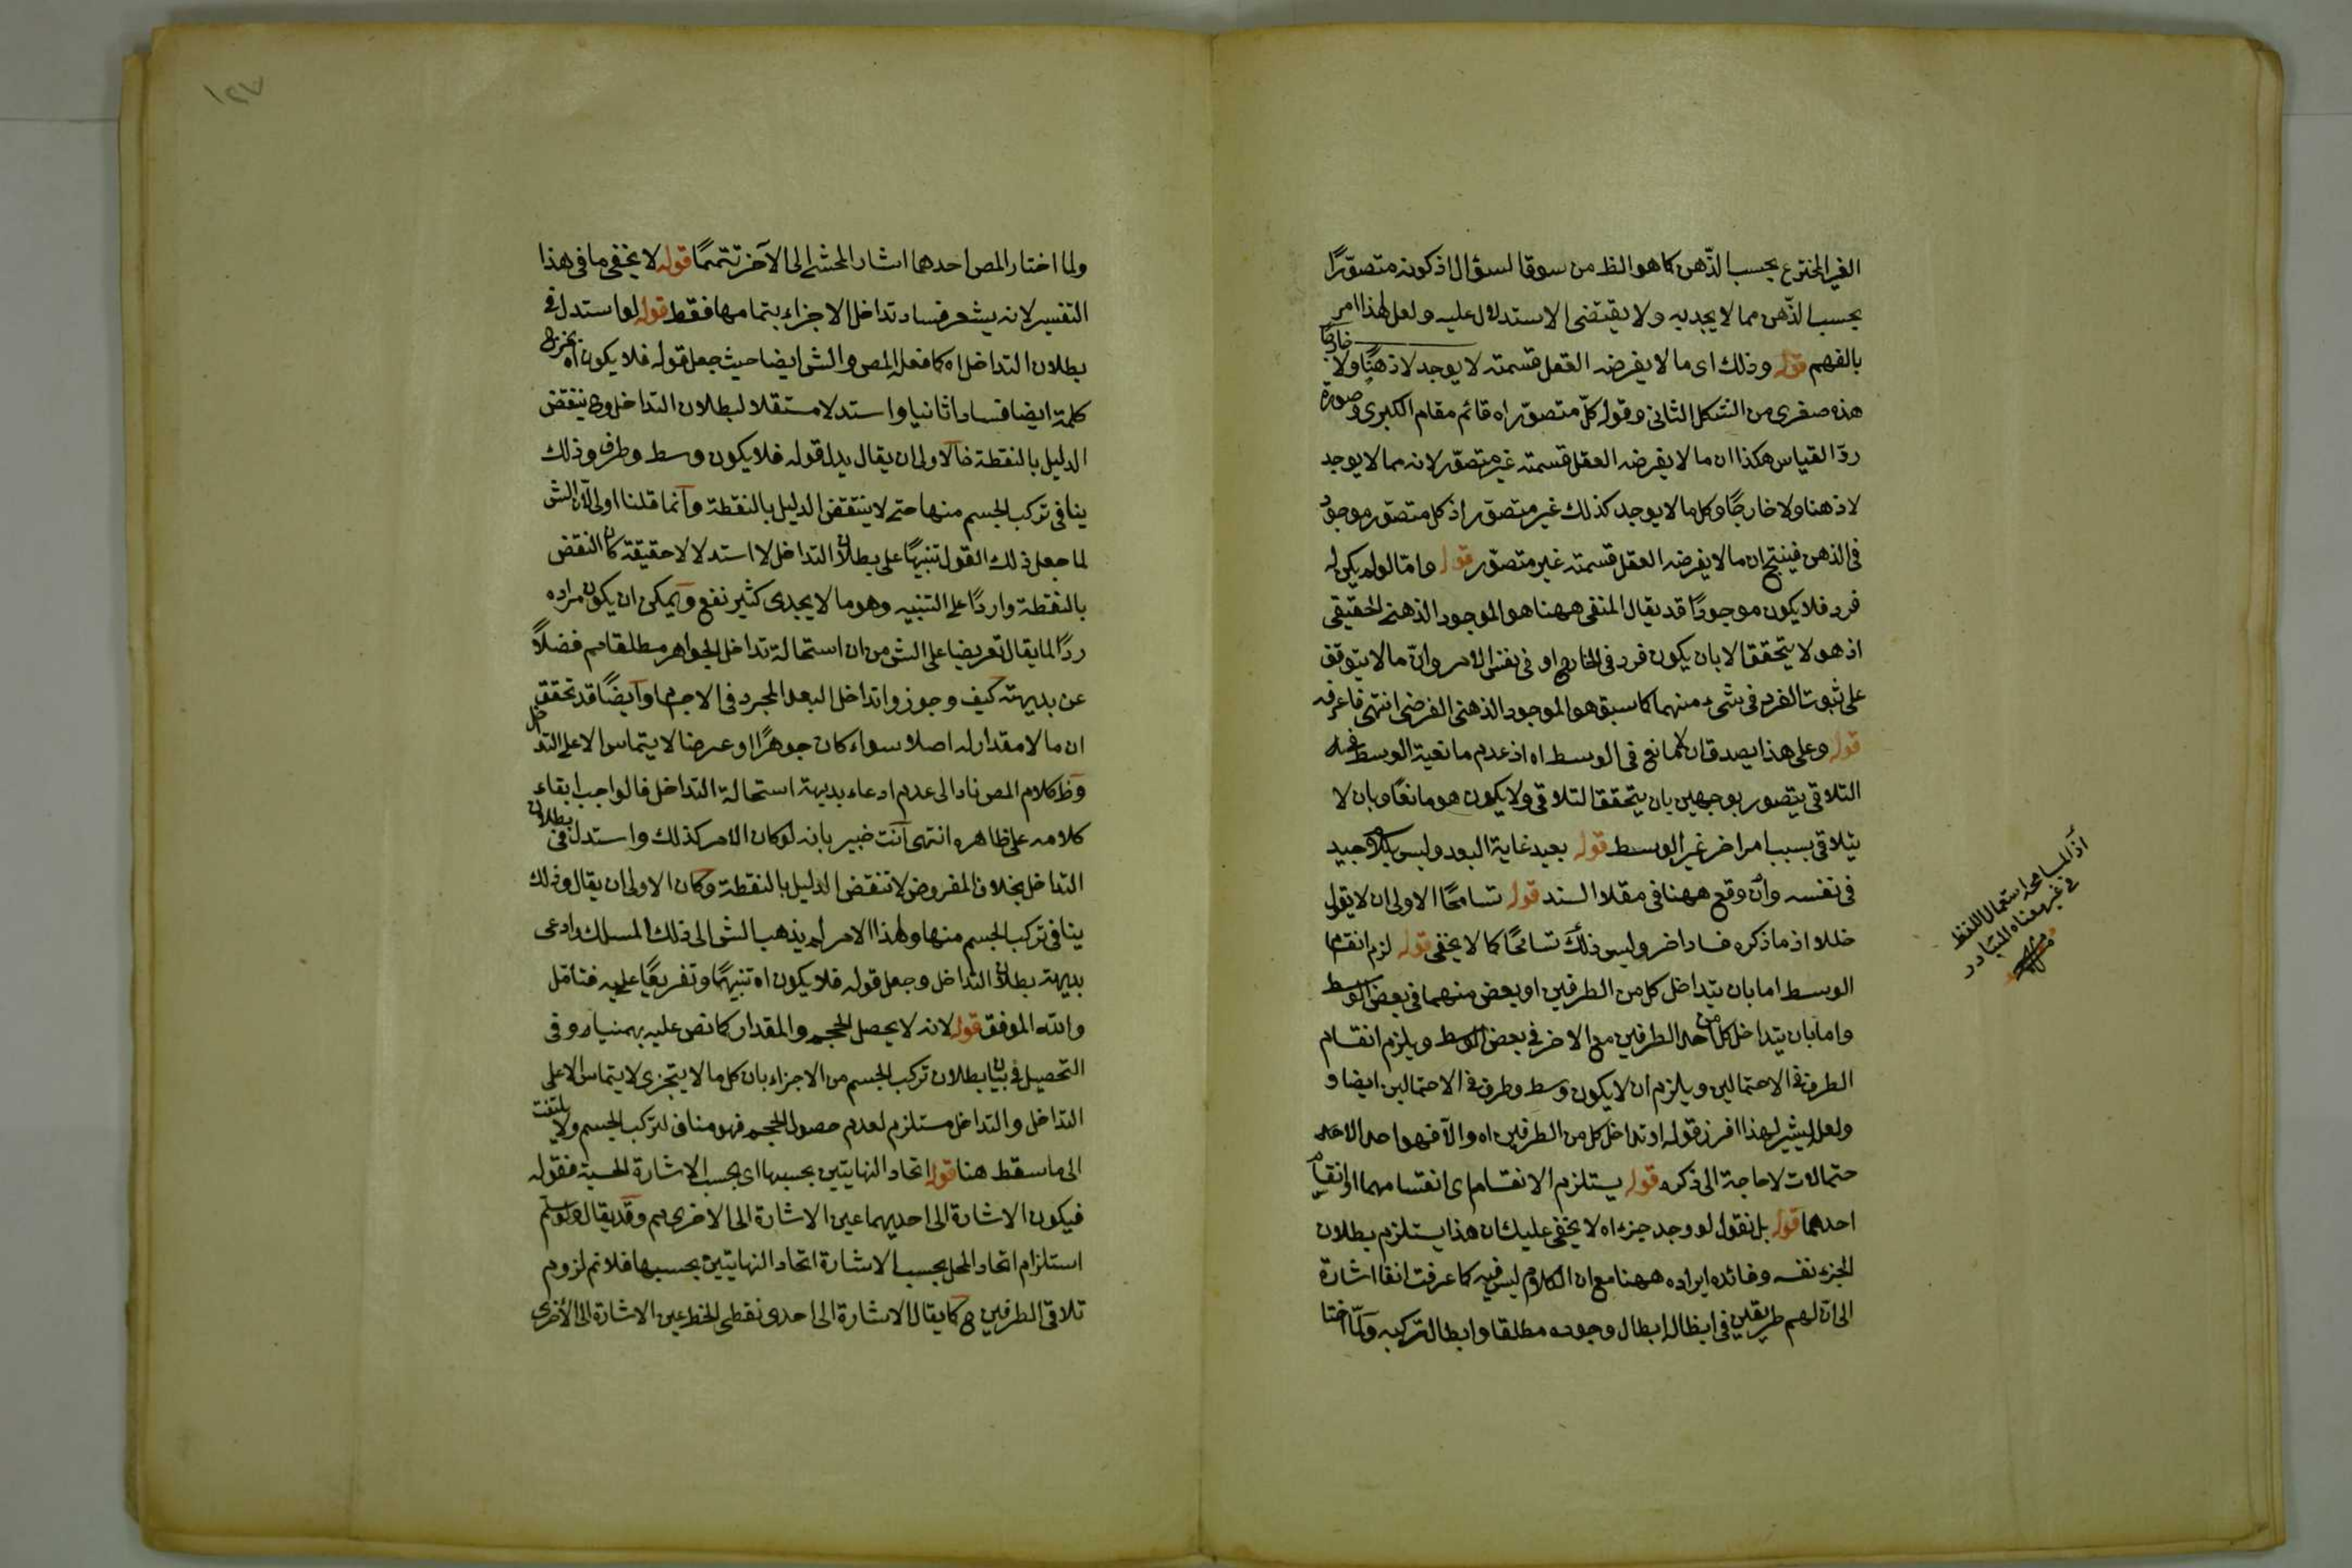 الغير المخترع بحسب الذّهن كما هو الظ من سوق السؤال اذ كونه متصوّرًا
بحسب الذّهن مما لا يجديه ولا يقتضى الاستدلال عليه ولعل لهذا امر
بالفهم قوله وذلك اى ما لا يفرضه العقل قسمته لا يوجد لا ذهنًا ولا خارجًا
هذه صغرى من الشكل الثانى وقوله كلّ متصوّر اه قائم مقام الكبرى وصورة
ردّ القياس هكذا ان ما لا يفرضه العقل قسمته غير متصوّر لانه مما لا يوجد
لا ذهنا ولا خارجًا وكل ما لا يوجد كذلك غير متصوّر اذ كل متصوّر موجود
فى الذهن فينتج ان ما لا يفرضه العقل قسمته غير متصوّر قوله وامّا لو لم يكن له
فرد فلا يكون موجودًا قد يقال المنفى ههنا هو الموجود الذهنى الحقيقى
اذ هو لا يتحقق الا بان يكون فرد فى الخارج او فى نفس الامر وانّ ما لا يتوقف
على ثبوت الفرد فى شىء منهما كما سبق هو الموجود الذهنى الفرضى انتهى فاعرفه
قوله وعلى هذا يصدق ان لا مانع فى الوسط اه اذ عدم مانعية الوسط عن
التلاقى يتصور بوجهين بان يتحقق التلاقى ولا يكون هو مانعًا وبان لا
يتلاقى بسبب امر اخر غير الوسط قوله بعيد غاية البعد وليس بكلام جيد
فى نفسه وان وقع ههنا فى مقلا السند قوله تسامحًا الاولى ان لا يقول
خللا اذ ما ذكره فساد اخر وليس ذلك تسامحًا كما لا يخفى قوله لزم انقسام
الوسط اما بان يتداخل كل من الطرفين او بعض منهما فى بعض الوسط
واما بان يتداخل كل من احد الطرفين مع الاخر فى بعض الوسط ويلزم انقسام
الطرف فى الاحتمالين ويلزم ان لا يكون وسط وطرف فى الاحتمالين ايضا و
ولعل ليشير لهذا افرز قوله او تداخل كل من الطرفين اه والا فهو احد الاحد
حتمالات لا حاجة الى ذكره قوله يستلزم الانقسام اى انقسامهما او انقسام
احدهما قوله بل نقول لو وجد جزء اه لا يخفى عليك ان هذا يستلزم بطلان
الجزء نفسه وفائدة ايراده ههنا مع ان الكلام ليس فيه كما عرفت انفا اشارة
الى انّ لهم طريقين فى ابطاله ابطال وجوده مطلقا وابطال تركيبه ولمّا اختا
اذ المسامحة استعمال اللفظ
فى غير معناه المتبادر
ولما اختار المص احدهما اشار المحشى الى الآخر تتميمًا قوله لا يخفى ما فى هذا
التفسير لانه يشعر فساد تداخل الاجزاء بتمامها فقط قوله لو استدل فى
بطلان التداخل اه كما فعله المص والش ايضا حيث جعل قوله فلا يكون اه
كلمة ايضا فسادا ثانيا واستدلا مستقلا لبطلان التداخل وح ينتقض
الدليل بالنقطة فالاولى ان يقال بدل قوله فلا يكون وسط وطرف وذلك
ينافى تركب الجسم منها حتى لا ينتقض الدليل بالنقطة وانما قلنا اولى لان الش
لما جعل ذلك القول تنبيهًا على بطلان التداخل لا استدلالا حقيقة كان النقض
بالنقطة واردًا على التنبيه وهو ما لا يجدى كثير نفع ويمكن ان يكون مراده
ردًا لما يقال تعريضا على الش من ان استحالة تداخل الجواهر مطلقا مم فضلاً
عن بديهته كيف وجوزوا تداخل البعد المجرد فى الاجسام وايضًا قد تحقق
ان ما لا مقدار له اصلا سواء كان جوهرًا او عرضا لا يتماس الا على التداخل
وظ كلام المص ناد الى عدم ادعاء بديهة استحالة التداخل فالواجب ابقاء
كلامه على ظاهره انتهى انت خبير بانه لو كان الامر كذلك واستدل فى بطلان
التداخل بخلاف المفروض لا تنقض الدليل بالنقطة وكان الاولى ان يقال وذلك
ينافى تركب الجسم منها ولهذا الامر لم يذهب الش الى ذلك المسلك وادعى
بديهة بطلان التداخل وجعل قوله فلا يكون اه تنبيهًا وتفريعًا عليه فتامل
والله الموفق قوله لانه لا يحصل الحجم والمقدار كما نص عليه بهمنيار وفى
التحصيل فى بيان بطلان تركب الجسم من الاجزاء بان كل ما لا يتجزى لا يتماس الا على
التداخل والتداخل مستلزم لعدم حصول الحجم فهو مناف لتركب الجسم ولا يلتفت
الى ما سقط هنا قوله اتحاد النهايتين بحسبها اى بحسب الاشارة الحسية فقوله
فيكون الاشارة الى احديهما عين الاشارة الى الاخرى مم وقد يقال ولو سلم
استلزام اتحاد المحل بحسب الاشارة اتحاد النهايتين بحسبها فلا نم لزوم
تلاقى الطرفين ح كما يقال الاشارة الى احدى نقطى الخط عين الاشارة الى الاخرى